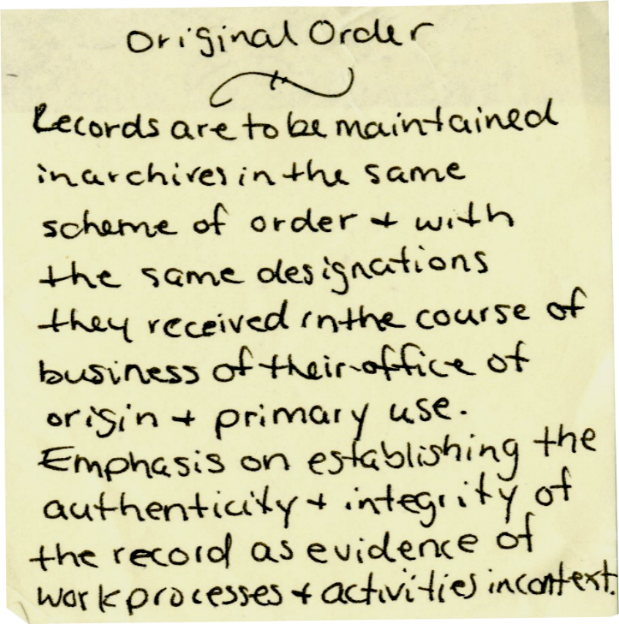 Original Order
Records are to be maintained
in archives in the same
scheme of order + with
the same designations
they received in the course of
business of their office of
origin + primary use.
Emphasis on establishing the
authenticity + integrity of
the record as evidence of
work processes + activities in context.